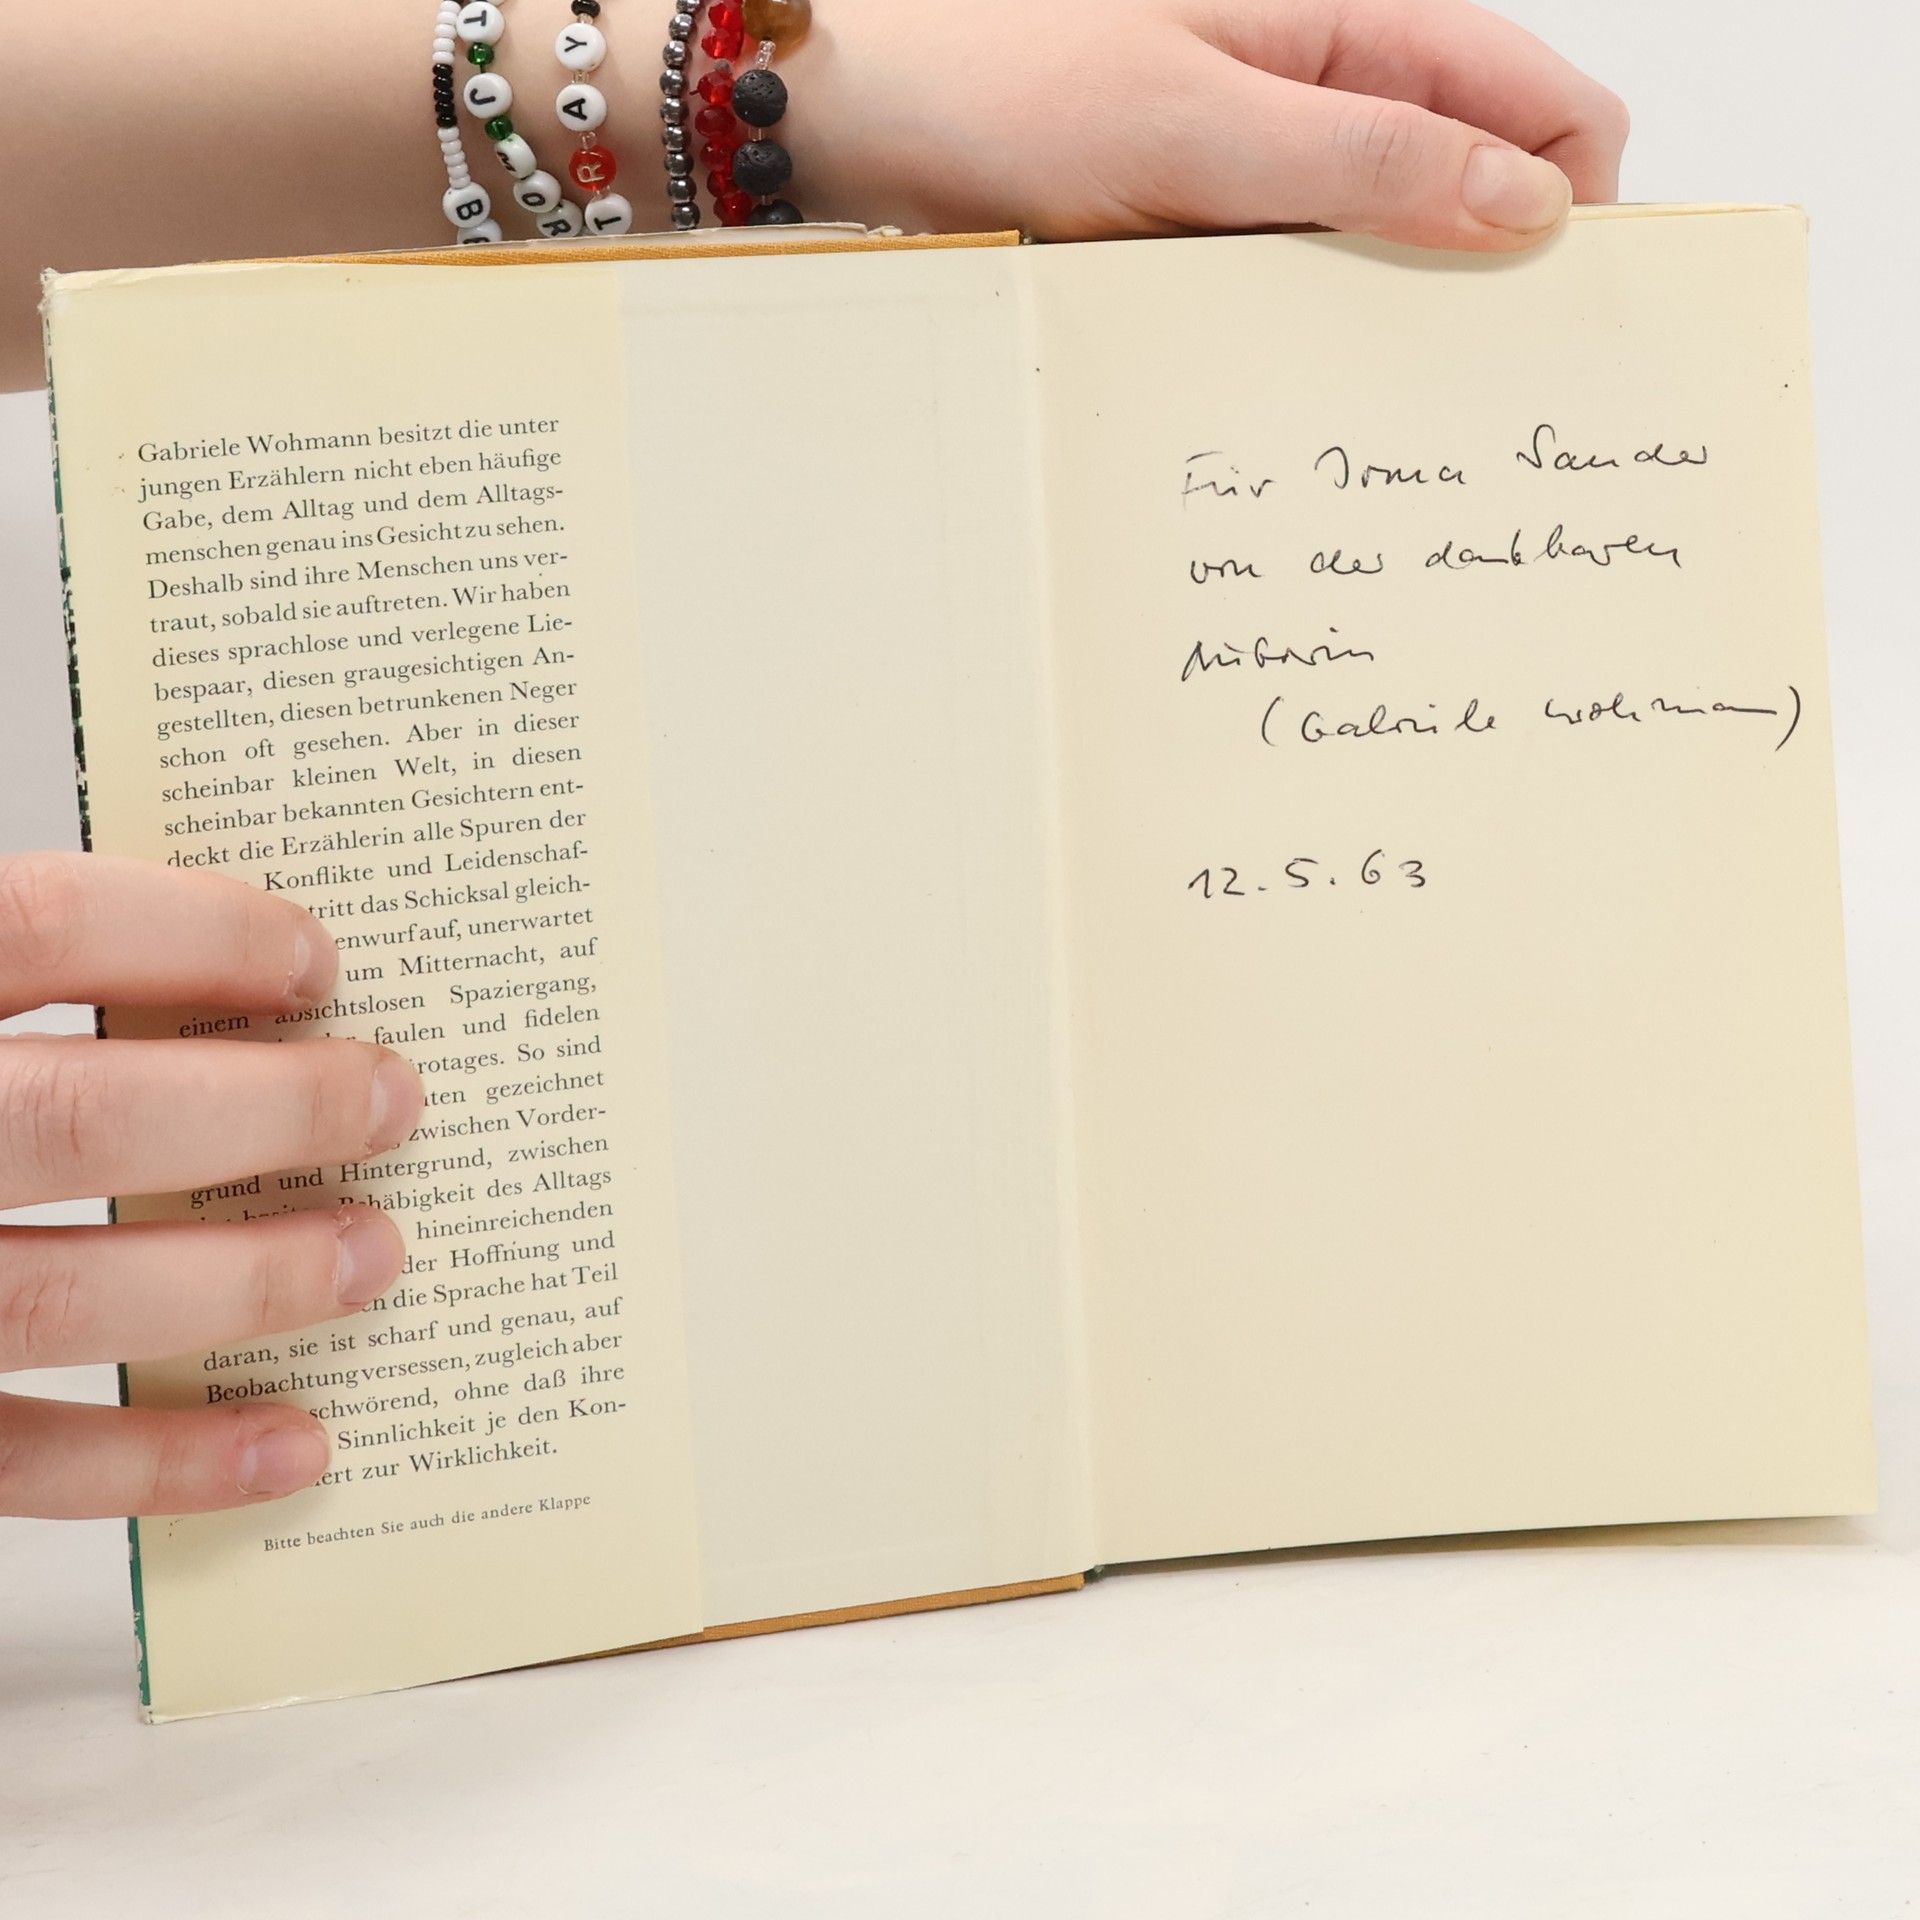 T
J
M
O
R
B
Y
A
R
T
Gabriele Wohmann besitzt die unter
jungen Erzählern nicht eben häufige
Gabe, dem Alltag und dem Alltags-
menschen genau ins Gesicht zu sehen.
Deshalb sind ihre Menschen uns ver-
traut, sobald sie auftreten. Wir haben
dieses sprachlose und verlegene Lie-
bespaar, diesen graugesichtigen An-
gestellten, diesen betrunkenen Neger
schon oft gesehen. Aber in dieser
scheinbar kleinen Welt, in diesen
scheinbar bekannten Gesichtern ent-
deckt die Erzählerin alle Spuren der
Konflikte und Leidenschaf-
tritt das Schicksal gleich-
enwurf auf, unerwartet
um Mitternacht, auf
einem absichtslosen Spaziergang,
faulen und fidelen
rotages. So sind
ten gezeichnet
zwischen Vorder-
grund und Hintergrund, zwischen
Behäbigkeit des Alltags
hineinreichenden
der Hoffnung und
die Sprache hat Teil
daran, sie ist scharf und genau, auf
Beobachtung versessen, zugleich aber
schwörend, ohne daß ihre
Sinnlichkeit je den Kon-
ert zur Wirklichkeit.
Bitte beachten Sie auch die andere Klappe
Für Irma Sander
von der dankbaren
Autorin
(Gabriele Wohmann)
12.5.63